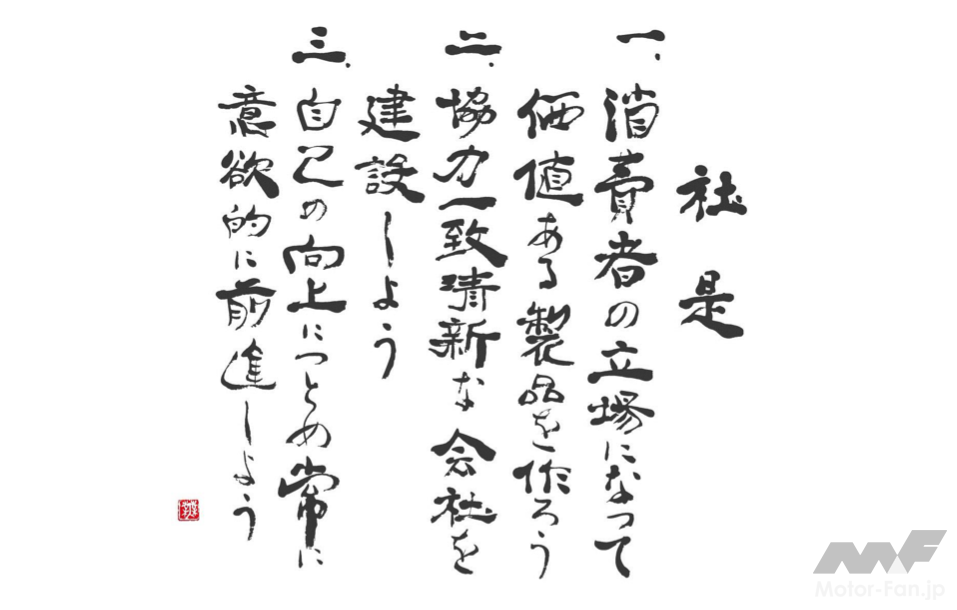 社是
一、消費者の立場になって
価値ある製品を作ろう
二、協力一致清新な会社を
建設しよう
三、自己の向上につとめ常に
意欲的に前進しよう
Motor-Fan.jp